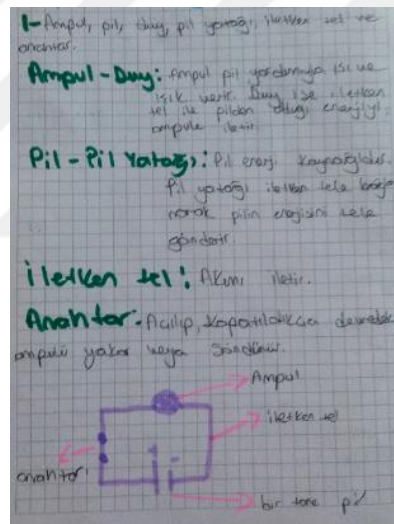 1- Ampul, pil, duy, pil yatağı, iletken tel ve
anahtar.
Ampul - Duy: Ampul pil yardımıyla ısı ve
ışık verir. Duy ise iletken
tel ile pilden aldığı enerjiyi
ampule iletir.
Pil - Pil Yatağı: Pil enerji kaynağıdır.
Pil yatağı iletken tele bağla
narak pilin enerjisini tele
gönderir.
iletken tel: Akımı iletir.
Anahtar: Açılıp, kapatıldıkça devredeki
ampulü yakar veya söndürür.
Ampul
iletken tel
anahtar
bir tane pil